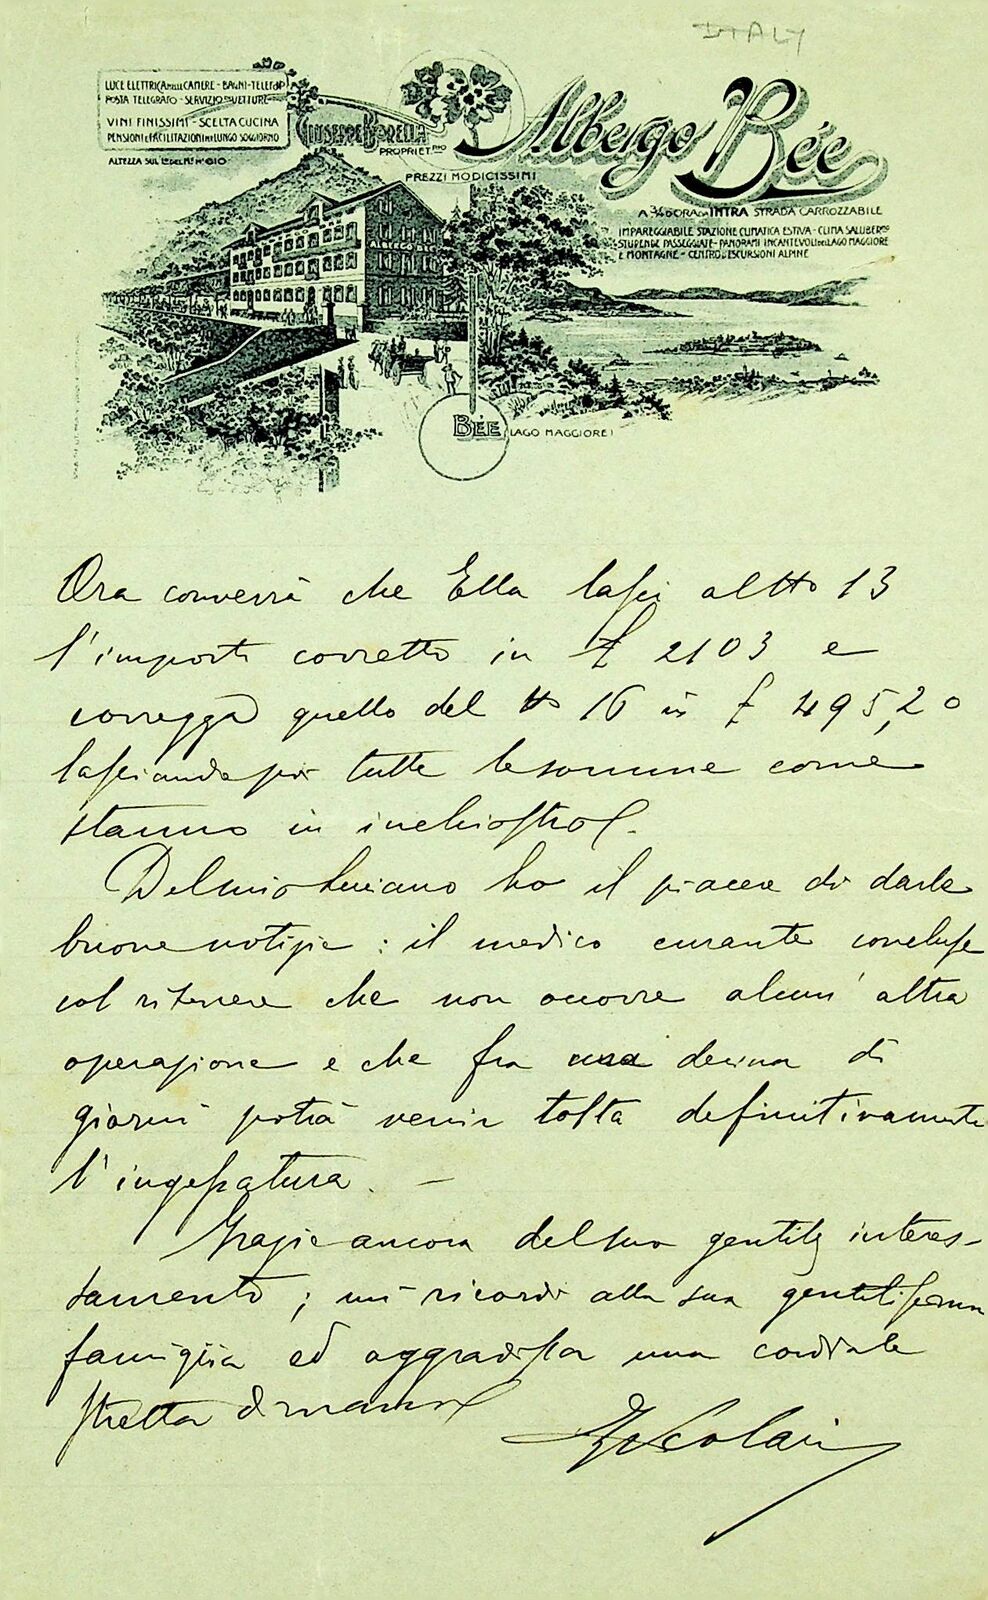 ITALY
LUCE ELETTRICA NELLE CAMERE - BAGNI - TELEF.
POSTA TELEGRAFO - SERVIZIO VETTURE
VINI FINISSIMI - SCELTA CUCINA
PENSIONI E FACILITAZIONI PER LUNGO SOGGIORNO
ALTEZZA SUL L. DEL M. M. 610
GIUSEPPE BORELLA
PROPRIET.RIO
PREZZI MODICISSIMI
Albergo Bée
A 3/4 D'ORA DA INTRA STRADA CARROZZABILE
IMPAREGGIABILE STAZIONE CLIMATICA ESTIVA - CLIMA SALUBER.MO
STUPENDE PASSEGGIATE - PANORAMI INCANTEVOLI DEL LAGO MAGGIORE
E MONTAGNE - CENTRO D'ESCURSIONI ALPINE
ALBERGO BÉE
BÉE (LAGO MAGGIORE)
Ora converrà che Ella lasci al No 13
l'importo corretto in £ 2103 e
corregga quello del No 16 in £ 495,20
lasciando poi tutte le somme come
stanno in inchiostro.
Del mio Luciano ho il piacere di darle
buone notizie: il medico curante concluse
col ritenere che non occorre alcun' altra
operazione e che fra una decina di
giorni potrà venir tolta definitivamente
l'ingessatura. —
Grazie ancora del suo gentile interes-
samento; mi ricordi alla sua gentilissima
famiglia ed aggradisca una cordiale
stretta di mano